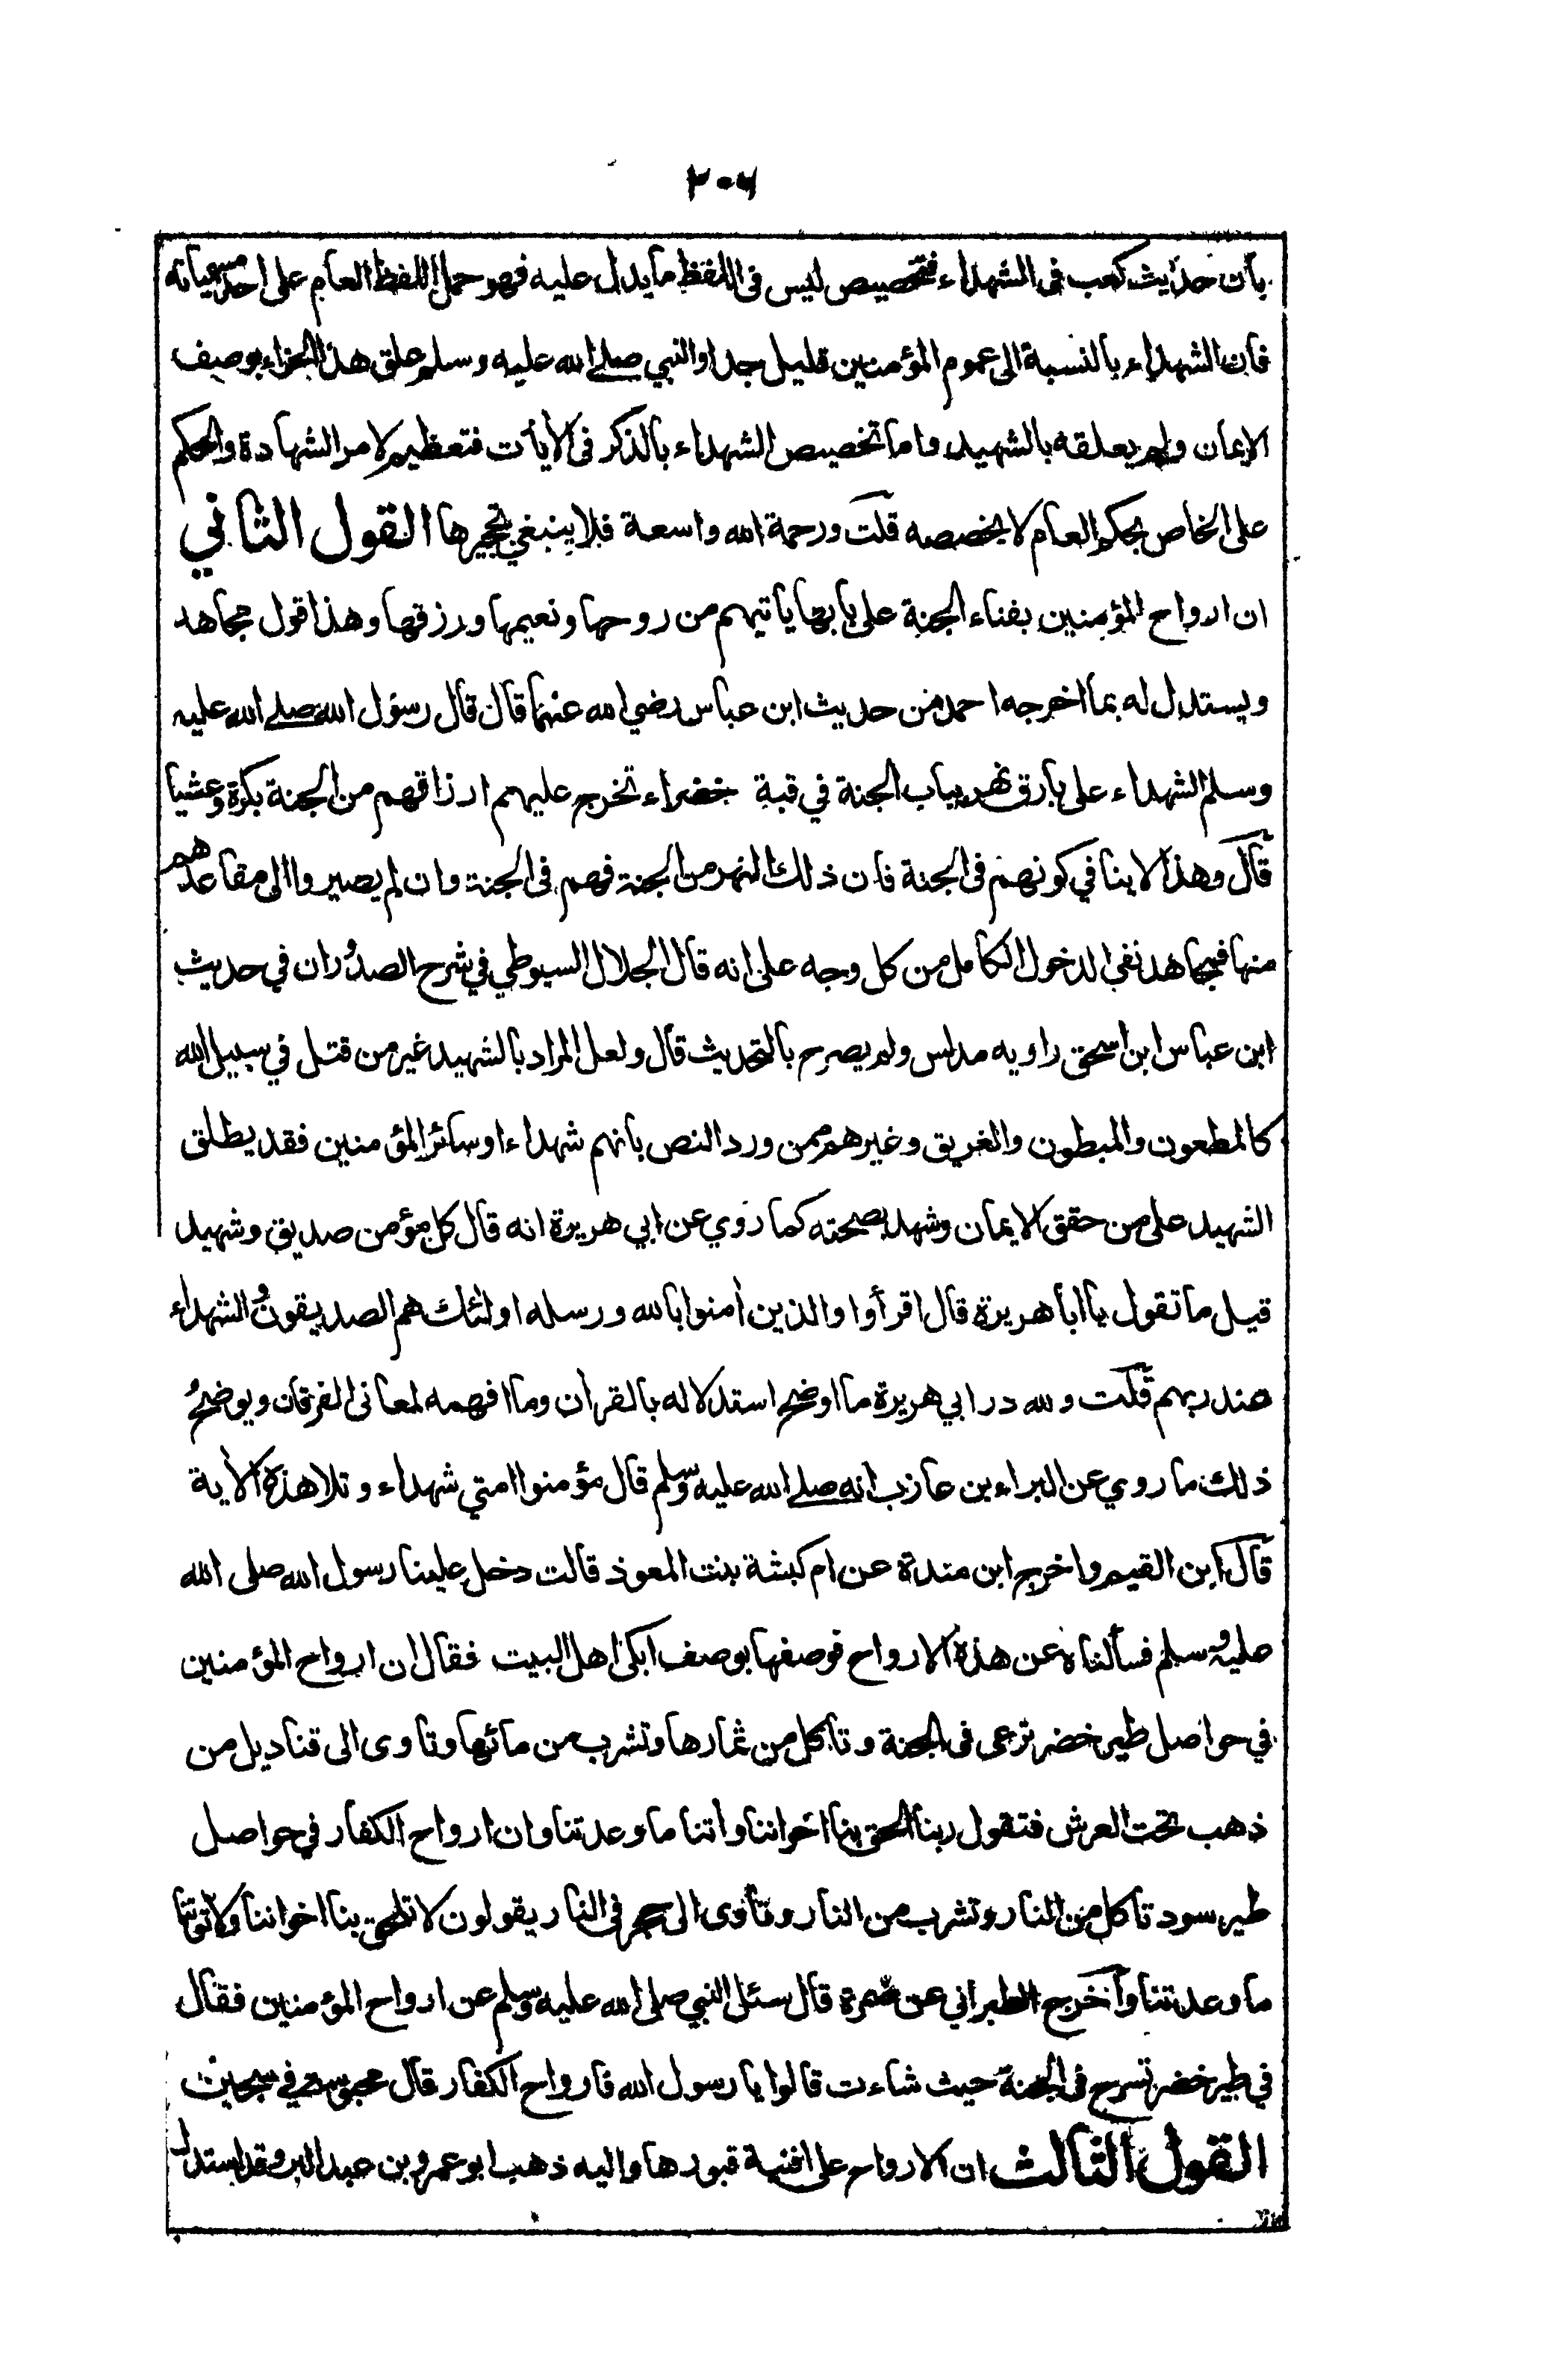 ٢٠٦
بأن حديث كعب فى الشهداء فتخصيص ليس فى اللفظ ما يدل عليه فهو حمل اللفظ العام على احد مسمياته
فان الشهداء بالنسبة الى عموم المؤمنين قليل جدا والنبي صلى الله عليه وسلم علق هذا الجزاء بوصف
الايمان ولم يعلقه بالشهيد واما تخصيص الشهداء بالذكر فى الأيأت فتعظيم لامر الشهادة والحكم
على الخاص بحكم العام لا يخصصه قلت ورحمة الله واسعة فلا ينبغي تحجيرها القول الثاني
ان ارواح المؤمنين بفناء الجنة على بابها ياتيهم من روحها ونعيمها ورزقها وهذا قول مجاهد
ويستدل له بما اخرجه احمد من حديث ابن عباس رضي الله عنهما قال قال رسول الله صلى الله عليه
وسلم الشهداء على بارق نهر بباب الجنة في قبة خضراء تخرج عليهم ارزاقهم من الجنة بكرة وعشيا
قال وهذا لا ينافي كونهم فى الجنة فان ذلك النهر من الجنة فهم فى الجنة وان لم يصيروا الى مقاعدهم
منها فمجاهد نفى الدخول الكامل من كل وجه على انه قال الجلال السيوطي في شرح الصدور ان في حديث
ابن عباس ابن اسحق راويه مدلس ولم يصرح بالتحديث قال ولعل المراد بالشهيد غير من قتل في سبيل الله
كالمطعون والمبطون والغريق وغيرهم ممن ورد النص بانهم شهداء او سائر المؤمنين فقد يطلق
الشهيد على من حقق الايمان وشهد بصحته كما روي عن ابي هريرة انه قال كل مؤمن صديق وشهيد
قيل ما تقول يا ابا هريرة قال اقرأوا والذين أمنوا بالله ورسله اولئك هم الصديقون والشهداء
عند ربهم قلت ولله در ابي هريرة ما اوضح استدلاله بالقرأن وما افهمه لمعانى الفرقان ويوضح
ذلك ما روي عن البراء بن عازب انه صلى الله عليه وسلم قال مؤمنوا امتي شهداء وتلا هذه الأية
قال ابن القيم واخرج ابن مندة عن ام كبشة بنت المعوذ قالت دخل علينا رسول الله صلى الله
عليه وسلم فسألناه عن هذه الارواح فوصفها بوصف ابكى اهل البيت فقال ان ارواح المؤمنين
في حواصل طير خضر ترعى فى الجنة وتاكل من ثمارها وتشرب من مائها وتاوى الى قناديل من
ذهب تحت العرش فتقول ربنا الحق بنا اخواننا وأتنا ما وعدتنا وان ارواح الكفار في حواصل
طير سود تاكل من النار وتشرب من النار وتأوى الى حجر فى النار يقولون لا تلحق بنا اخواننا ولا تؤتنا
ما وعدتنا وأخرج الطبراني عن ضمرة قال سئل النبي صلى الله عليه وسلم عن ارواح المؤمنين فقال
في طير خضر تسرح فى الجنة حيث شاءت قالوا يا رسول الله فارواح الكفار قال محبوسة في سجين
القول الثالث ان الارواح على افنية قبورها واليه ذهب ابو عمرو بن عبد البر وقد استدل